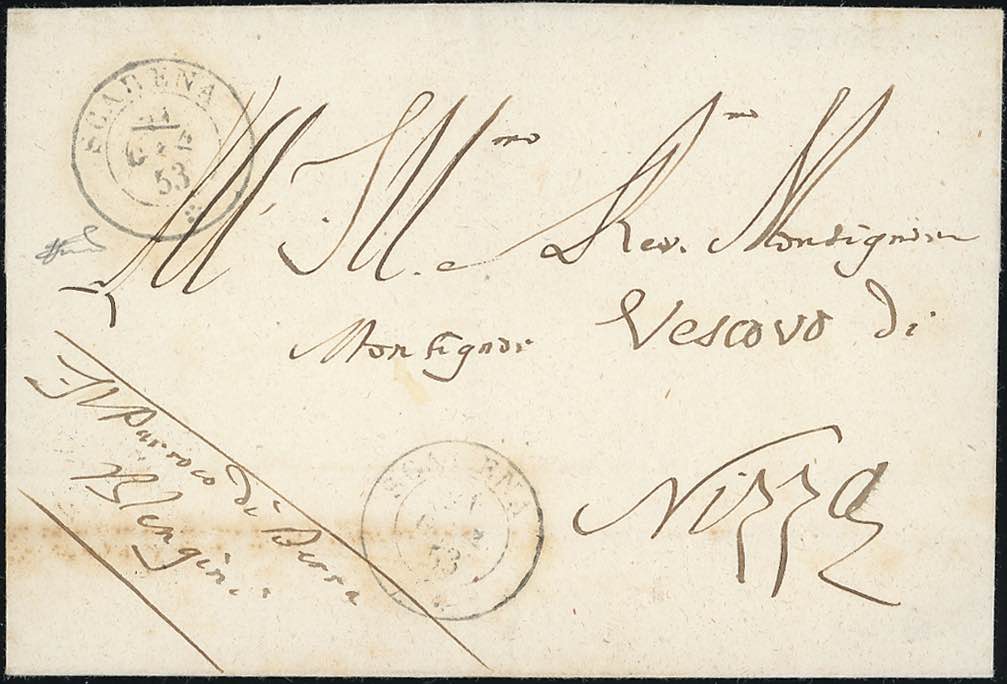 SCARENA
53
All' Ill.mo e Rev.mo Monsignore
Monsignor Vescovo di
Nizza
Il Parroco di Berra
Blengini
SCARENA
53